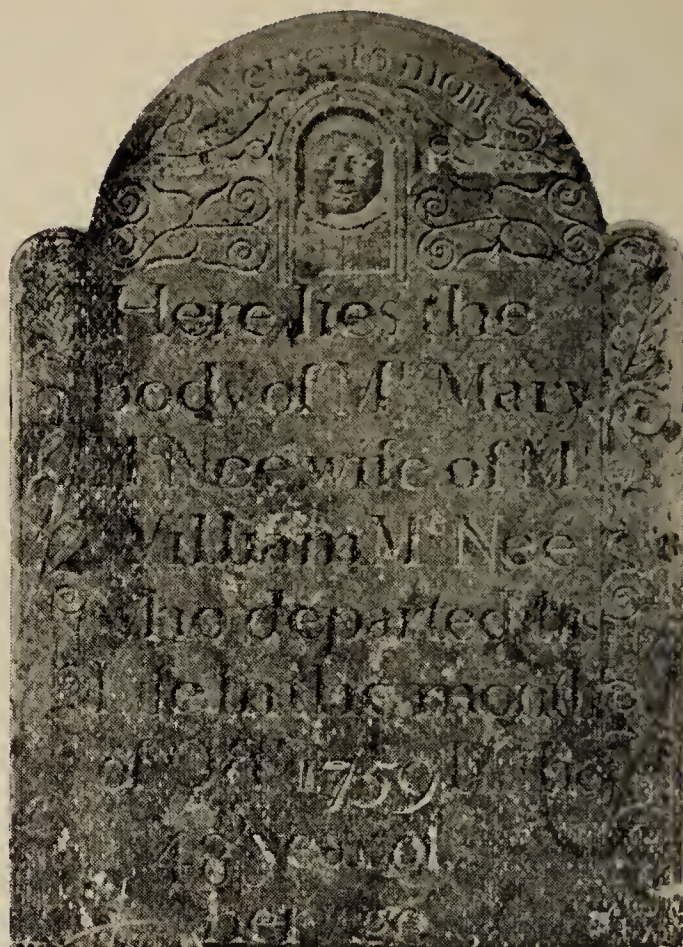 Here lies the
body of Mrs Mary
Mc Nee wife of Mr
William Mc Nee
who departed this
life in the month
of Oct 1759
48 years of
her age